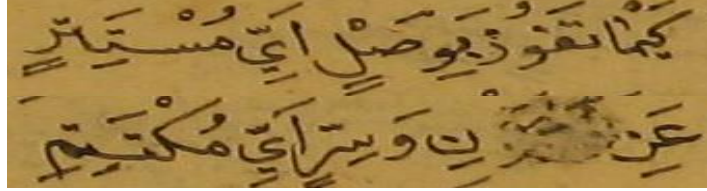 كَيْمَا تَفُوْزَ بِوَصْلٍ اَيِّ مُسْتَتِرٍ
عَنِ وَسِرٍّ اَيِّ مُكْتَتِمِ